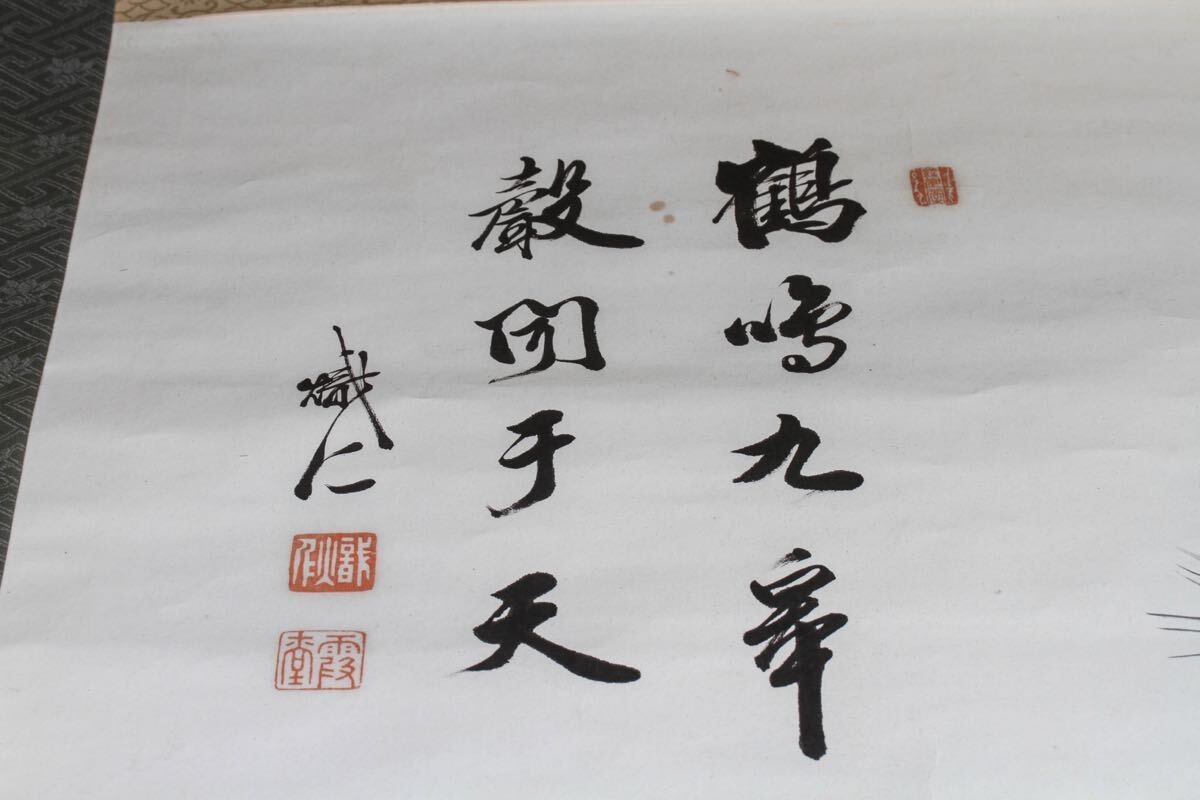 鶴鳴九皋
聲聞于天
熾仁
熾仁
霞堂